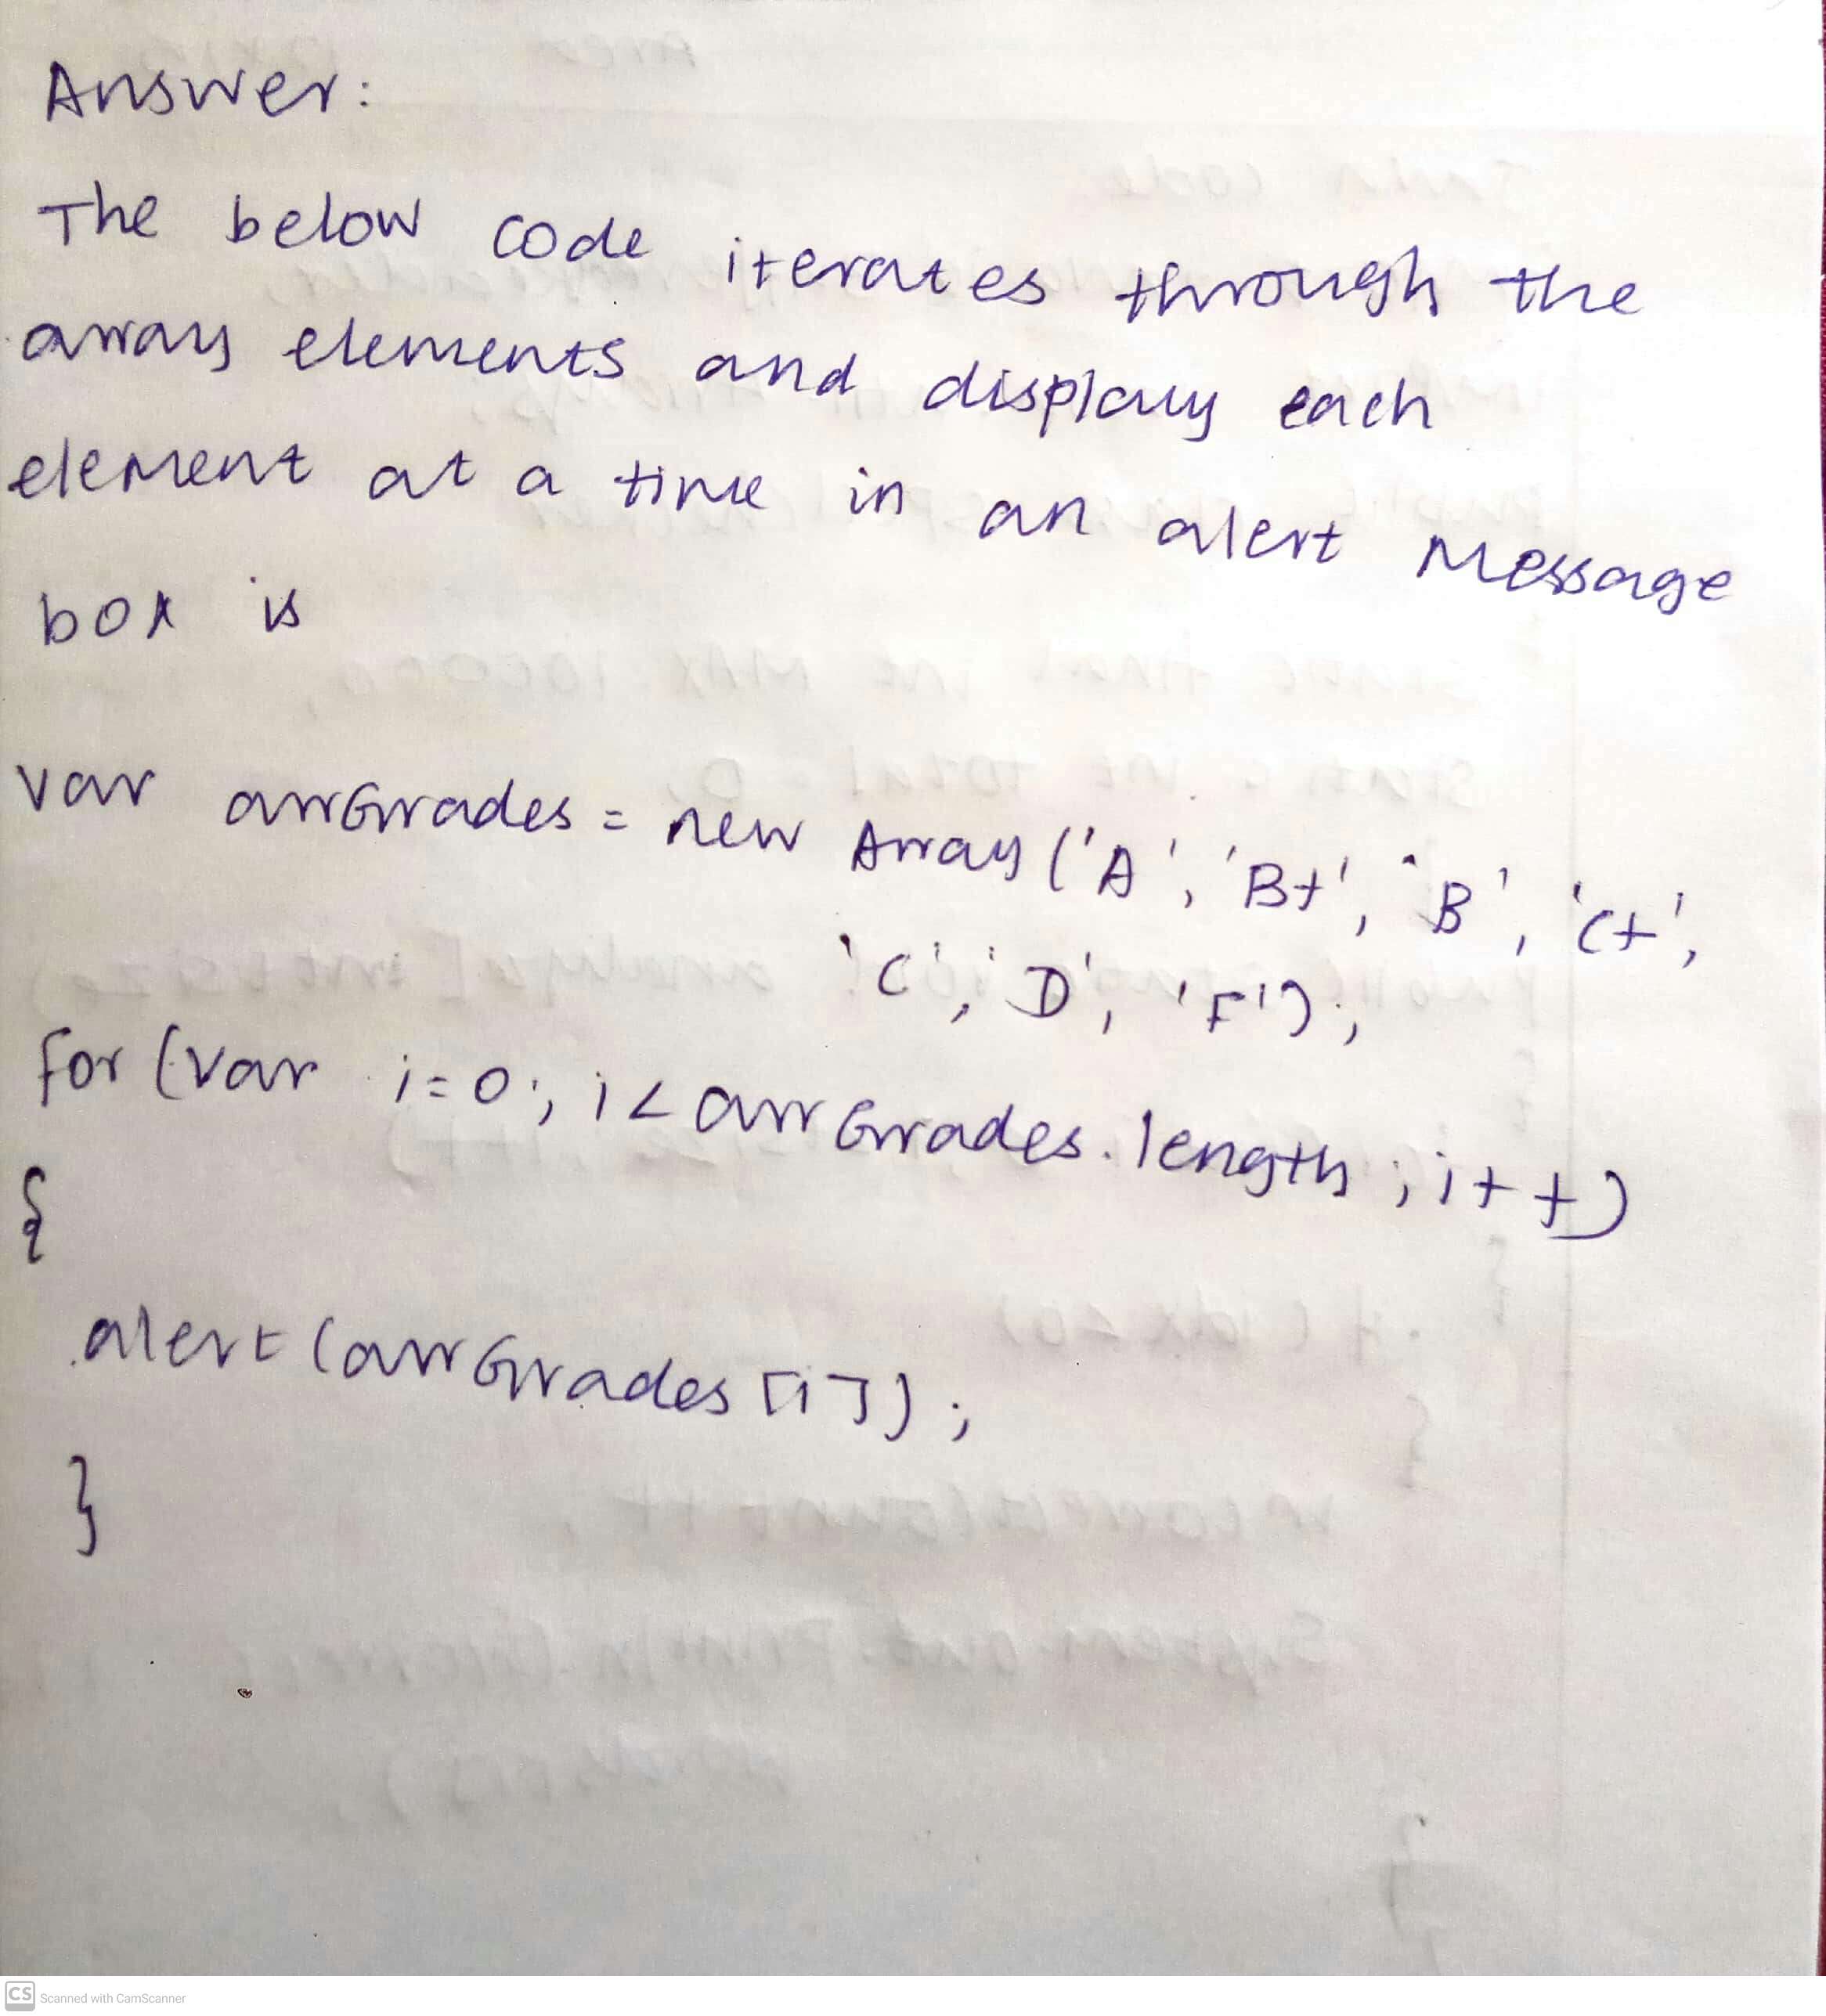 Answer:
The below code iterates through the
array elements and display each
element at a time in an alert Message
box is
var arrGrades = new Array ('A', 'B+', 'B', 'C+',
'C', 'D', 'F');
for (var i=0; i< arrGrades.length; i++)
{
alert (arrGrades [i]);
}
CS Scanned with CamScanner